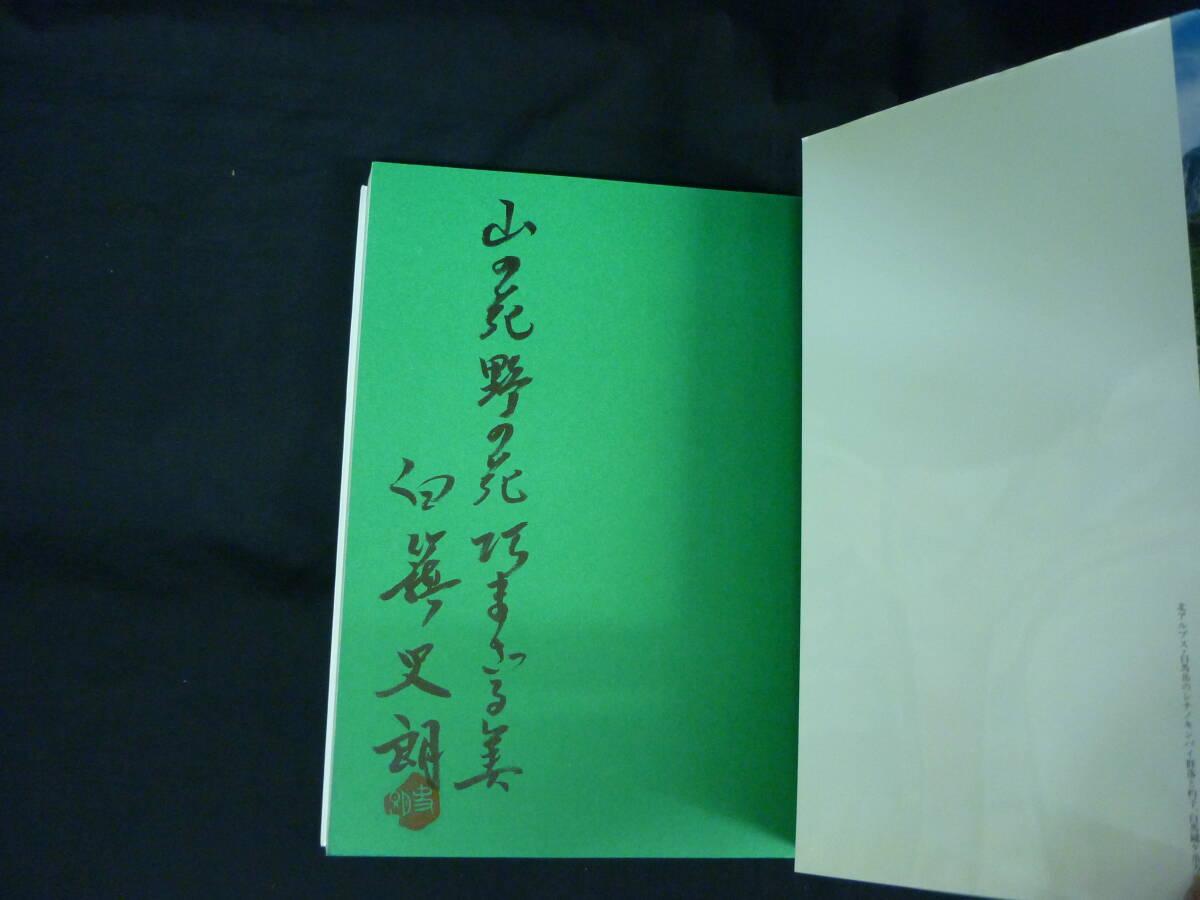 北アルプス・白馬岳のシナノキンバイ群落と杓子・白馬鑓ヶ
山の花野の花 巧まざる美
白籏史朗